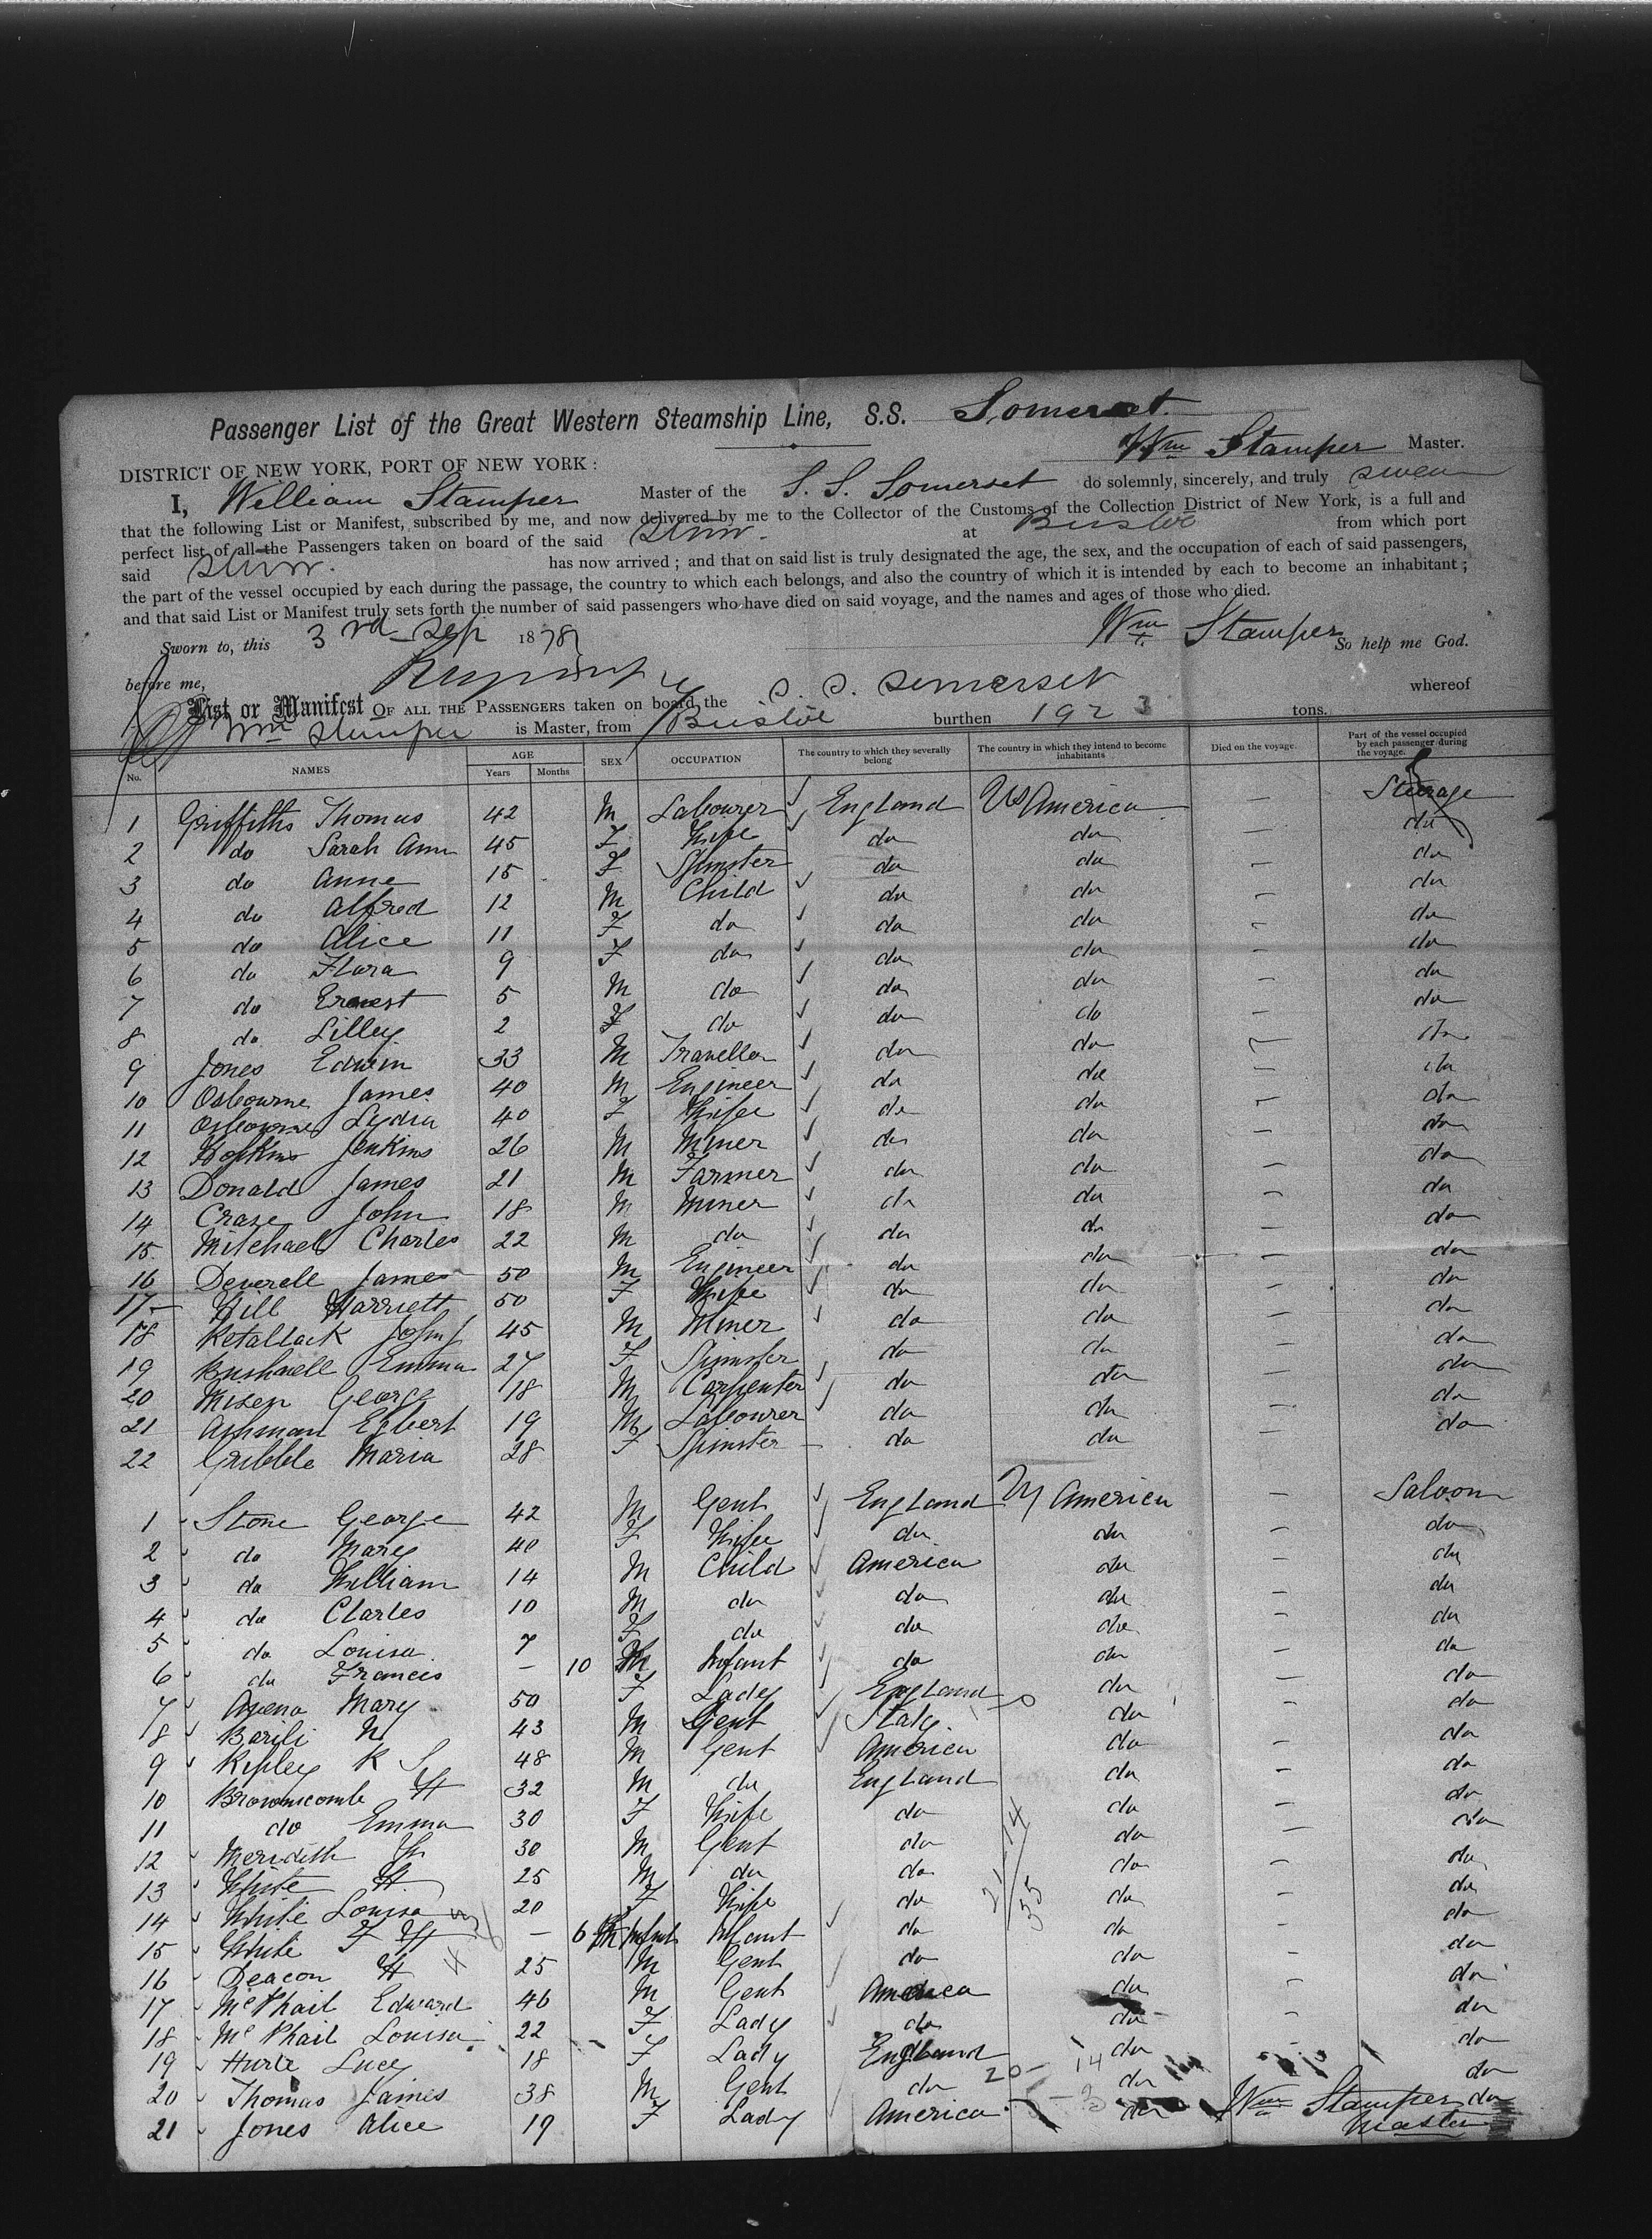 Passenger List of the Great Western Steamship Line, S.S. Somerset.
Wm Stamper Master.
DISTRICT OF NEW YORK, PORT OF NEW YORK :
I, William Stamper Master of the S. S. Somerset do solemnly, sincerely, and truly swear
that the following List or Manifest, subscribed by me, and now delivered by me to the Collector of the Customs of the Collection District of New York, is a full and
perfect list of all the Passengers taken on board of the said Stmr. at Bristol from which port
said Stmr. has now arrived ; and that on said list is truly designated the age, the sex, and the occupation of each of said passengers,
the part of the vessel occupied by each during the passage, the country to which each belongs, and also the country of which it is intended by each to become an inhabitant ;
and that said List or Manifest truly sets forth the number of said passengers who have died on said voyage, and the names and ages of those who died.
Sworn to, this 3rd Sep 1878 Wm Stamper So help me God.
before me,
List or Manifest OF ALL THE PASSENGERS taken on board the S. S. Somerset whereof
Wm Stamper is Master, from Bristol burthen 1923 tons.
No. NAMES AGE Years Months SEX OCCUPATION The country to which they severally belong The country in which they intend to become inhabitants Died on the voyage. Part of the vessel occupied by each passenger during the voyage.
1 Griffiths Thomas 42 M Labourer England US America — Steerage
2 do Sarah Ann 45 F Wife do do — do
3 do Anne 15 F Spinster do do — do
4 do Alfred 12 M Child do do — do
5 do Alice 11 F do do do — do
6 do Flora 9 F do do do — do
7 do Ernest 5 M do do do — do
8 do Lilley 2 F do do do — do
9 Jones Edwin 33 M Traveller do do — do
10 Osbourne James 40 M Engineer do do — do
11 Osbourne Lydia 40 F Wife do do — do
12 Hopkins Jenkins 26 M Miner do do — do
13 Donald James 21 M Farmer do do — do
14 Craze John 18 M Miner do do — do
15 Mitchael Charles 22 M do do do — do
16 Deverell James 50 M Engineer do do — do
17 Hill Harriett 50 F Wife do do — do
18 Retallack John J 45 M Miner do do — do
19 Bushnell Emma 27 F Spinster do do — do
20 Mizen George 18 M Carpenter do do — do
21 Ashman Egbert 19 M Labourer do do — do
22 Gribble Maria 28 F Spinster do do — do
1 Stone George 42 M Gent England America — Saloon
2 do Mary 40 F Wife do do — do
3 do William 14 M Child America do — do
4 do Charles 10 M do do do — do
5 do Louisa 7 F do do do — do
6 do Frances — 10 Infant do do — do
7 Mary 50 F Lady England do — do
8 Barili N 43 M Gent Italy do — do
9 Ripley R S 48 M Gent America do — do
10 Brownscombe H 32 M do England do — do
11 do Emma 30 F Wife do do — do
12 Meridith 30 M Gent do do — do
13 White H 25 M do do do — do
14 White Louisa 20 F Wife do do — do
15 White F H — 6 Infant do do do
16 Deacon H 25 M Gent do do — do
17 McPhail Edward 46 M Gent America do — do
18 McPhail Louisa 22 F Lady do do — do
19 Lucy 18 F Lady England do do
20 Thomas James 38 M Gent do do do
21 Jones Alice 19 F Lady America do do
Wm Stamper
Master